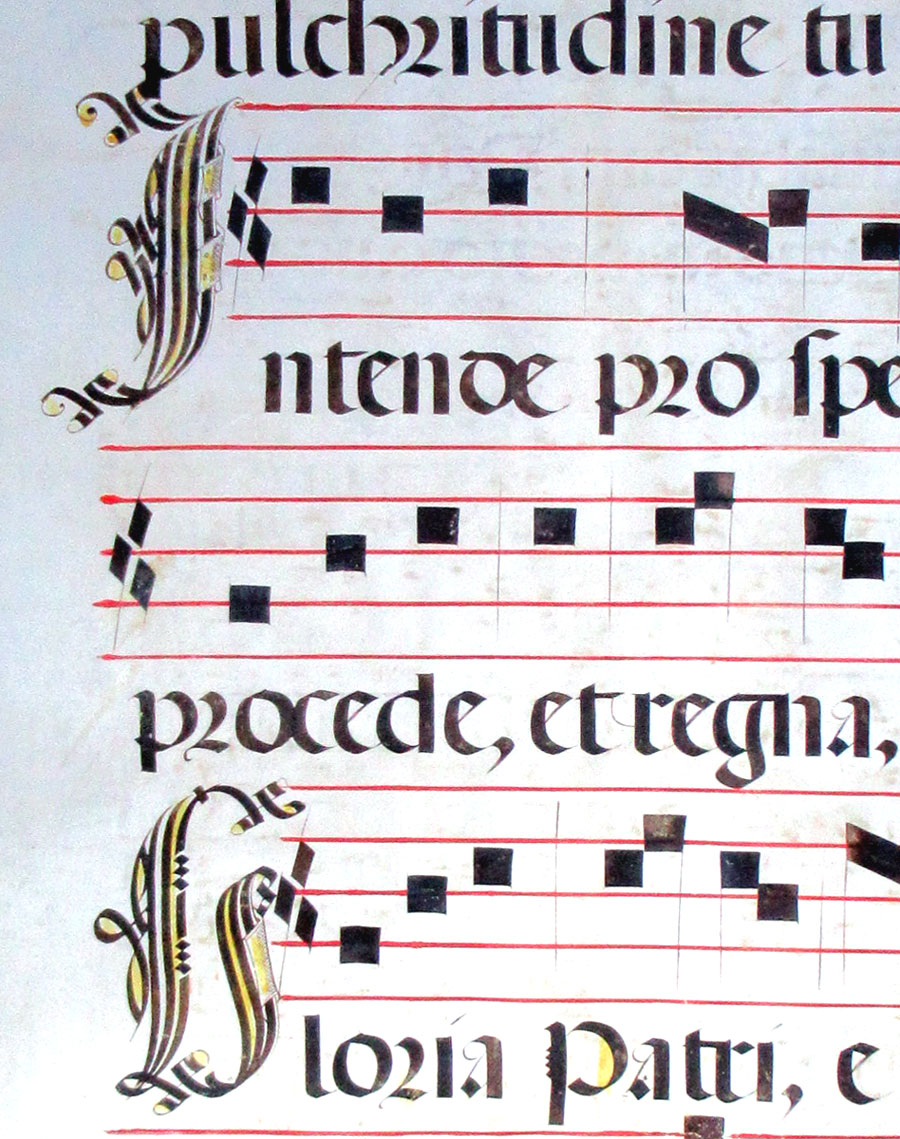 pulchritudine tu
Intende pro ſpe
procede, et regna,
Gloria Patri, e